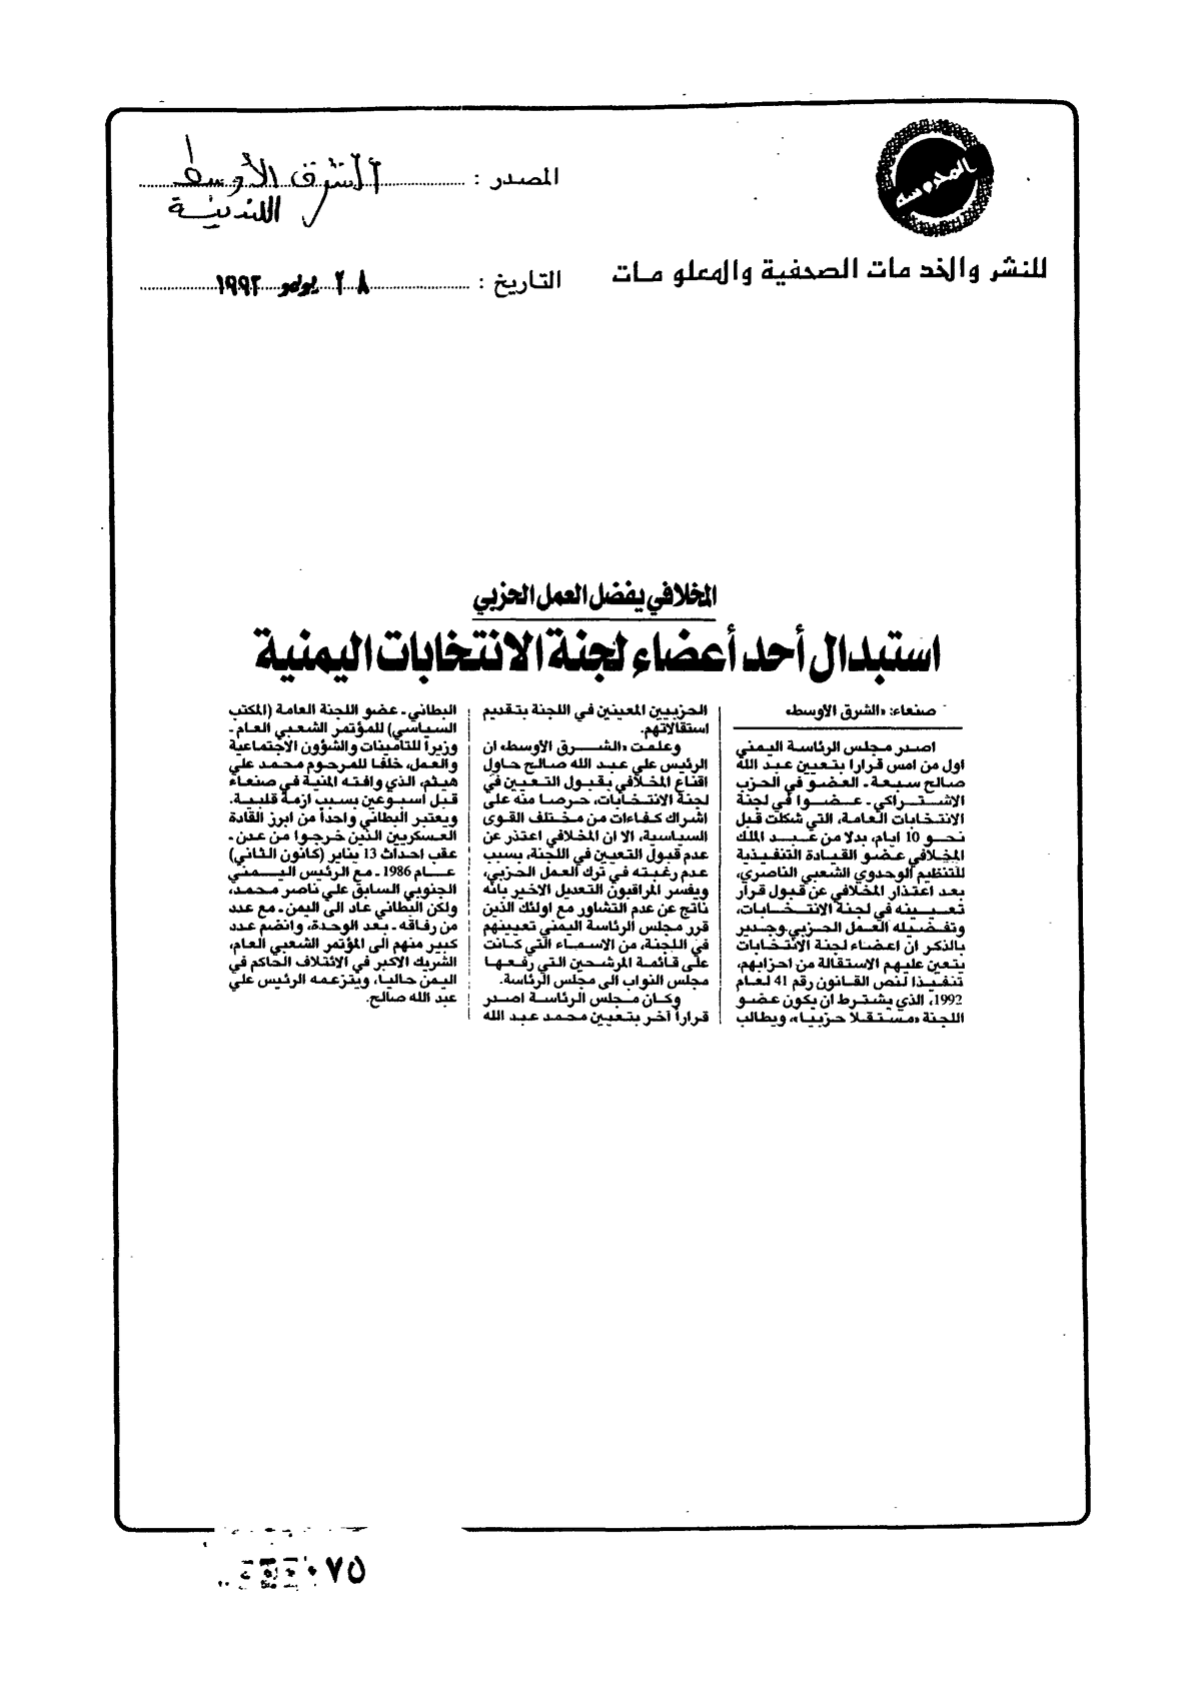 المحروسة
للنشر والخدمات الصحفية والمعلومات
المصدر : الشرق الأوسط
اللندنية
التاريخ : ٢٨ يوليو ١٩٩٢
المخلافي يفضل العمل الحزبي
استبدال أحد أعضاء لجنة الانتخابات اليمنية
صنعاء: «الشرق الأوسط»
اصدر مجلس الرئاسة اليمني
اول من امس قرارا بتعيين عبد الله
صالح سبعة ـ العضو في الحزب
الاشتراكي ـ عضوا في لجنة
الانتخابات العامة، التي شكلت قبل
نحو 10 ايام، بدلا من عبد الملك
المخلافي عضو القيادة التنفيذية
للتنظيم الوحدوي الشعبي الناصري،
بعد اعتذار المخلافي عن قبول قرار
تعيينه في لجنة الانتخابات،
وتفضيله العمل الحزبي وجدير
بالذكر ان اعضاء لجنة الانتخابات
يتعين عليهم الاستقالة من احزابهم،
تنفيذا لنص القانون رقم 41 لعام
1992، الذي يشترط ان يكون عضو
اللجنة «مستقلا حزبيا»، ويطالب
الحزبيين المعينين في اللجنة بتقديم
استقالاتهم.
وعلمت «الشرق الأوسط» ان
الرئيس علي عبد الله صالح حاول
اقناع المخلافي بقبول التعيين في
لجنة الانتخابات، حرصا منه على
اشراك كفاءات من مختلف القوى
السياسية، الا ان المخلافي اعتذر عن
عدم قبول التعيين في اللجنة، بسبب
عدم رغبته في ترك العمل الحزبي،
ويفسر المراقبون التعديل الاخير بانه
ناتج عن عدم التشاور مع اولئك الذين
قرر مجلس الرئاسة اليمني تعيينهم
في اللجنة، من الاسماء التي كانت
على قائمة المرشحين التي رفعها
مجلس النواب الى مجلس الرئاسة.
وكان مجلس الرئاسة اصدر
قراراً آخر بتعيين محمد عبد الله
البطاني ـ عضو اللجنة العامة (المكتب
السياسي) للمؤتمر الشعبي العام ـ
وزيراً للتأمينات والشؤون الاجتماعية
والعمل، خلفا للمرحوم محمد علي
هيثم، الذي وافته المنية في صنعاء
قبل اسبوعين بسبب ازمة قلبية.
ويعتبر البطاني واحداً من ابرز القادة
العسكريين الذين خرجوا من عدن ـ
عقب احداث 13 يناير (كانون الثاني)
عام 1986 ـ مع الرئيس اليمني
الجنوبي السابق علي ناصر محمد،
ولكن البطاني عاد الى اليمن ـ مع عدد
من رفاقه ـ بعد الوحدة، وانضم عدد
كبير منهم الى المؤتمر الشعبي العام،
الشريك الاكبر في الائتلاف الحاكم في
اليمن حاليا، ويتزعمه الرئيس علي
عبد الله صالح.